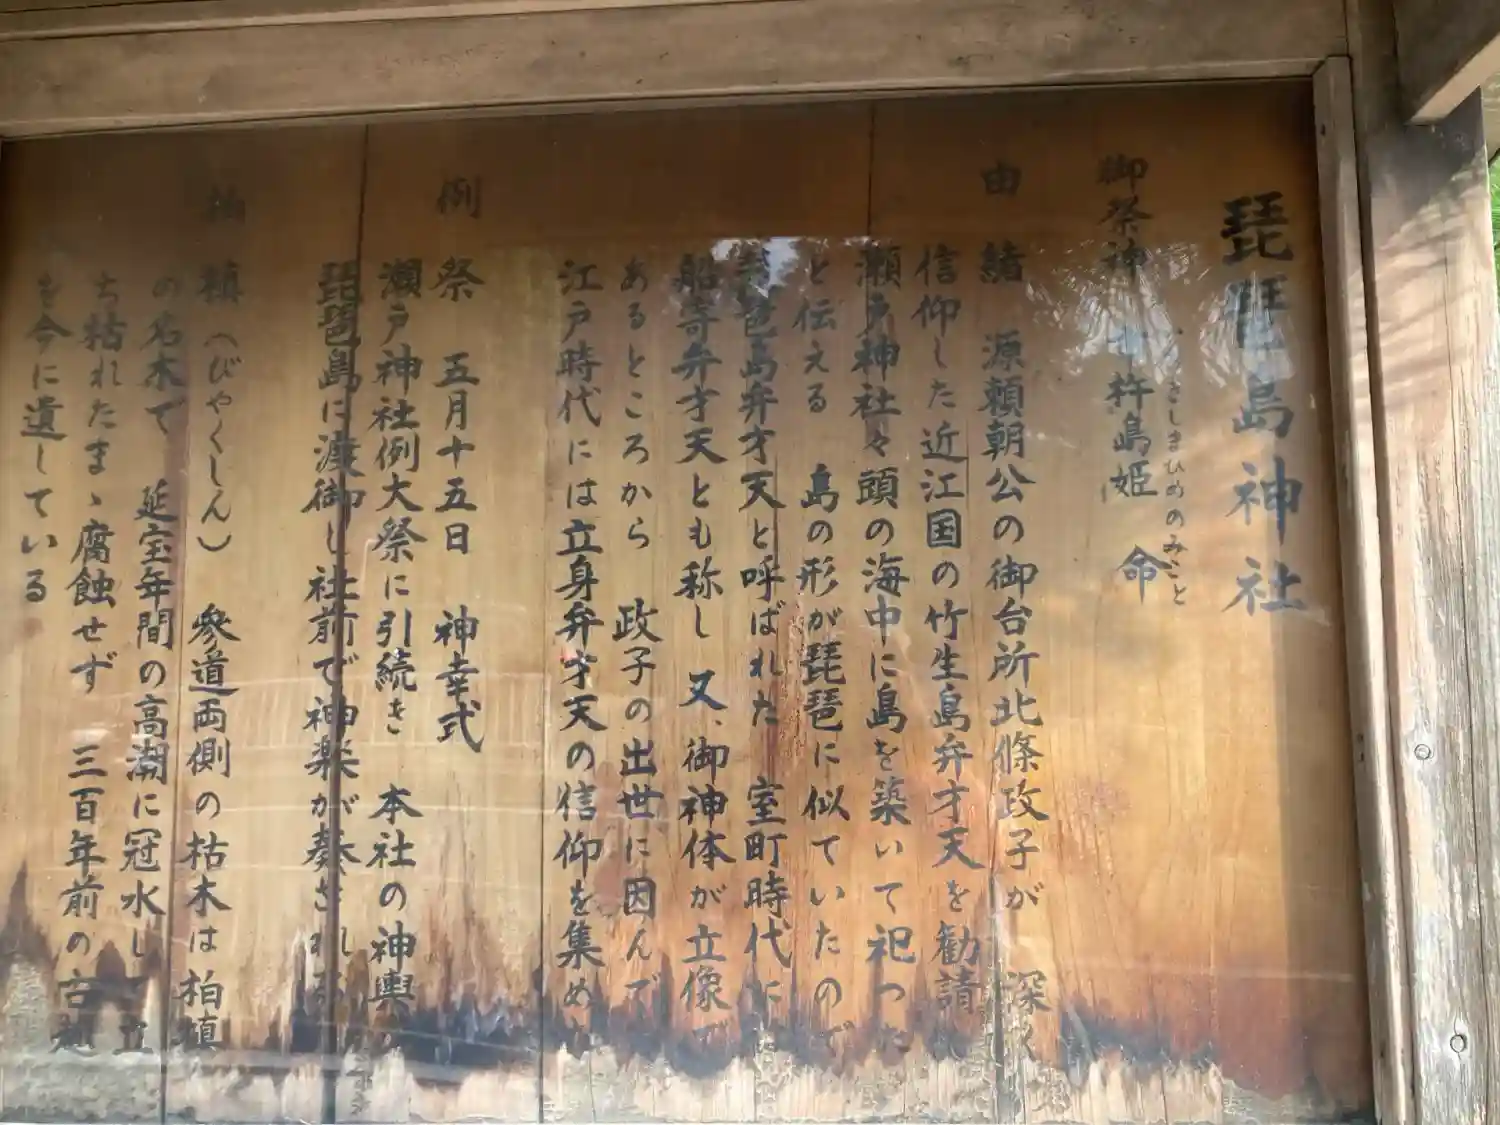 琵琶島神社
きしまひめのみこと
御祭神 市杵島姫 命
由緒 源頼朝公の御台所北條政子が 深く
信仰した近江国の竹生島弁才天を勧請
瀬戸神社々頭の海中に島を築いて祀った
と伝える 島の形が琵琶に似ていたので
琵琶島弁才天と呼ばれた 室町時代には
船寄弁才天とも称し 又、御神体が立像で
あるところから 政子の出世に因んで
江戸時代には立身弁才天の信仰を集めた
例祭 五月十五日 神幸式
瀬戸神社例大祭に引続き 本社の神輿
琵琶島に渡御し社前で神楽が奏される
柏槙(びやくしん) 参道両側の枯木は柏槙
の名木で 延宝年間の高潮に冠水し 立
ち枯れたまゝ腐蝕せず 三百年前の古
を今に遺している